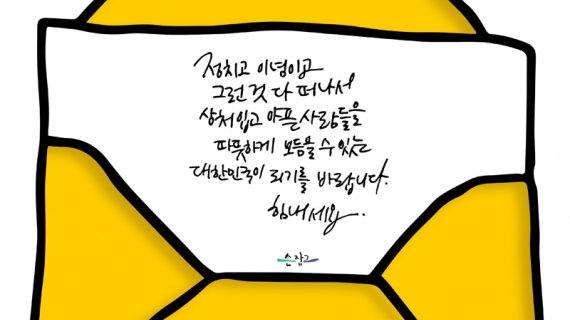 정치고 이념이고
그런 것 다 떠나서
상처입고 아픈 사람들을
따뜻하게 보듬을 수 있는
대한민국이 되기를 바랍니다.
힘내세요.
손잡고